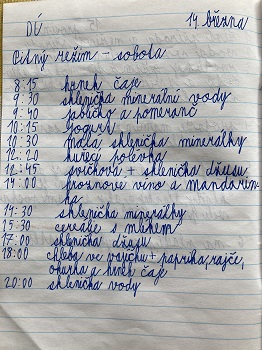 DÚ 14. března
Pitný režim - sobota
8:15 hrnek čaje
9:30 sklenička minerální vody
9:40 jablíčko a pomeranč
10:15 jogurt
10:30 malá sklenička minerálky
12:20 kuřecí polévka
12:45 svíčková + sklenička džusu
14:00 hroznové víno a mandarin-
ka
14:30 sklenička minerálky
15:30 cereálie s mlékem
17:00 sklenička džusu
18:00 chleba ve vajíčku + paprika, rajče,
okurka a hrnek čaje
20:00 sklenička vody